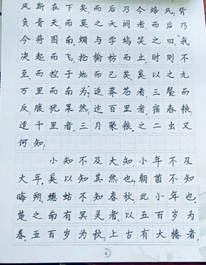 风斯在下矣而后乃今培风背
负青天而莫之夭阏者而后乃
今将图南。蜩与学鸠笑之曰:“我
决起而飞抢榆枋而止时则不
至而控于地而已矣奚以之九
万里而南为?适莽苍者三餐而
反腹犹果然;适百里者,宿舂粮
适千里者,三月聚粮。之二虫又
何知!
小知不及大知,小年不及
大年。奚以知其然也?朝菌不知
晦朔,蟪蛄不知春秋,此小年也。
楚之南有冥灵者,以五百岁为
春,五百岁为秋;上古有大椿者,